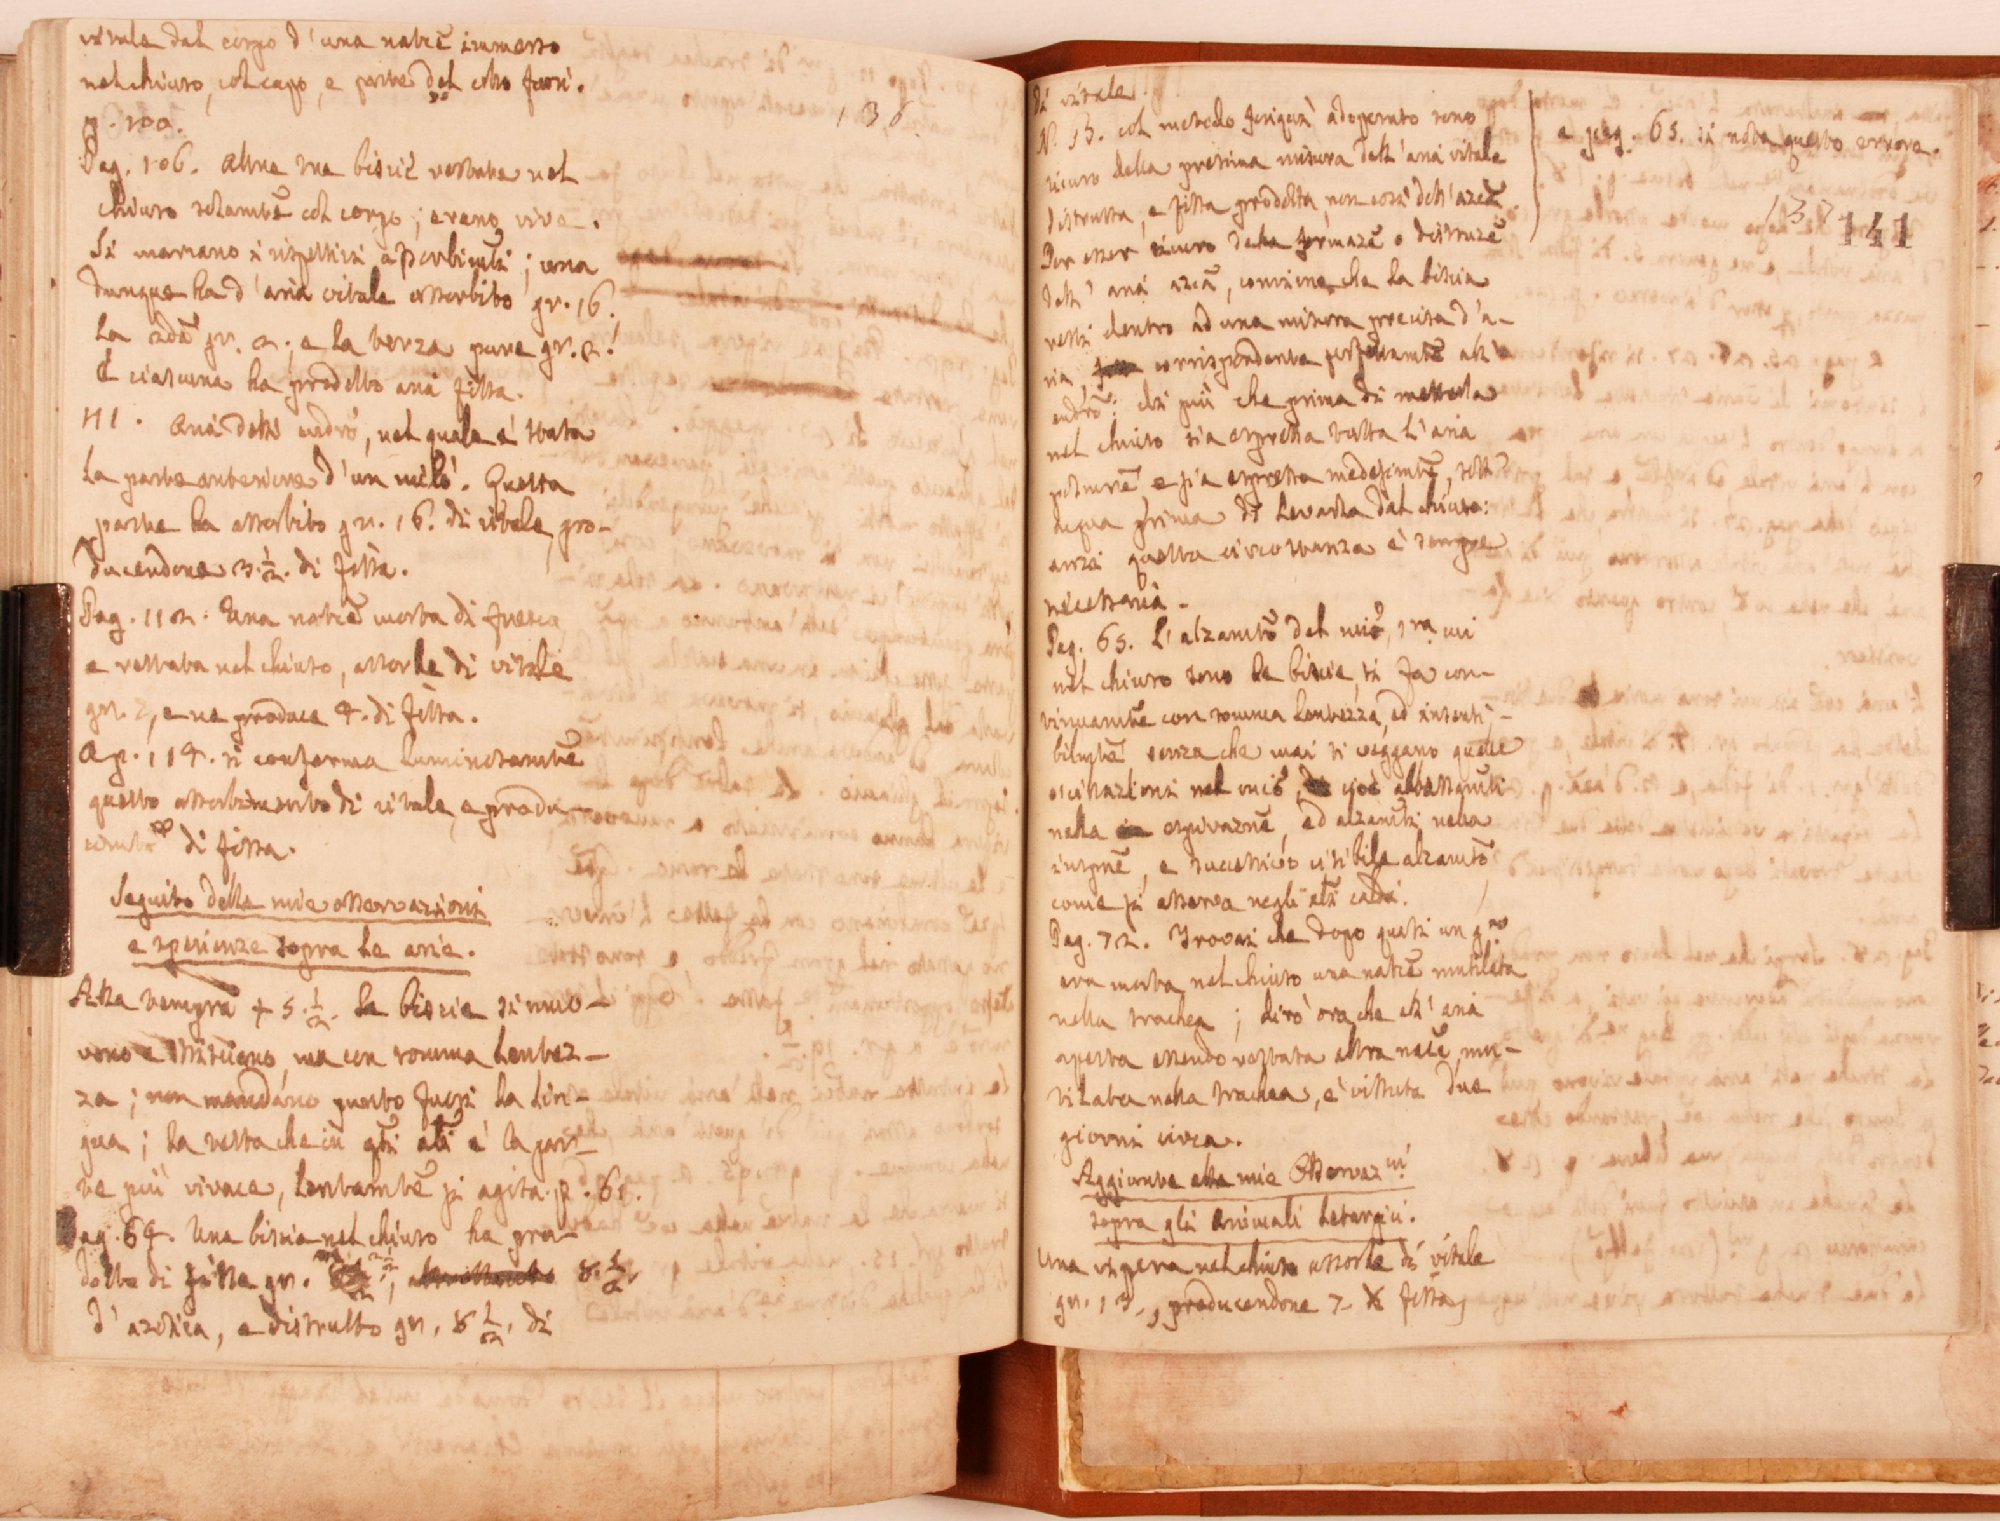 vitale dal corpo d'una natrĉe immerso
nel chiuso, col capo, e parte del collo fuori.
p. 100.
136.
Pag. 106. Altre tre biscie restate nel
chiuso solamtẽ col corpo; erano vive.
Si marcano i rispettivi assorbimti; una
dunque ha d'aria vitale assorbito gr. 16.
La 2dã gr. 2., e la terza pure gr. 2.
E ciascuna ha prodotto aria fissa.
111. Aria dell' eudro, nel quale è stata
la parte anteriore d'un
parte ha assorbito gr. 16. di vitale, pro-
ducendone 3 1/2. di fissa.
Pag. 112. Una natrĉe morta di fresco
e restata nel chiuso, assorbe di vitale
gr. 7, e ne produce 4. di fissa.
A p. 114. si conferma luminosamtẽ
questo assorbimento di vitale, e produ-
cimto di fissa.
Seguito delle mie osservazioni
e sperienze sopra le arie.
Alla tempra + 5 1/2. le biscie si muo-
vono e strisciano, ma con somma lentez-
za; non mandano punto fuori la lin-
gua; la testa che in gli alti è la par-
te più vivace, lentamtẽ si agita. p. 61.
Pag. 64. Una biscia nel chiuso ha pro-
dotto di fissa gr. 8. 1/2.
d'azotica, e distrutto gr. 8 1/2. di
di vitale.
N. 13. col metodo finquì adoperato sono
sicuro della precisa misura dell'aria vitale
distrutta, e fissa prodotta, non così dell'azotĉa.
Per esser sicuro della formazẽ o distruzẽ
dell'aria azotĉa, conviene che la biscia
resti dentro ad una misura precisa d'a-
ria, corrispondente perfettamtẽ all'
eudro: di più che prima di metterla
nel chiuso sia espressa tutta l'aria
polmonrẽ, e sia espressa medesimtẽ, sott'
acqua prima di levarla dal chiuso:
anzi questa circostanza è sempre
necessaria.
Pag. 65. L'alzamtõ del mercurio, tra cui
nel chiuso sono le biscie, si fa con-
tinuamtẽ con somma lentezza, ed insensi-
bilmtẽ senza che mai si veggano quelle
oscillazioni nel cioè abbassamti
nella espirazionẽ, ed alzamti nella
inspirnẽ, e successivo visibile alzamtõ
come si osserva negli alti caldi.
Pag. 72. Trovai che dopo quasi un gno
era morta nel chiuso una natrĉe mutilata
nella trachea; dirò ora che all'aria
aperta essendo restata altra natĉe, mu-
tilata nella trachea, è vissuta due
giorni circa.
Aggiunte alle mie Osservazni
sopra gli animali letargici.
Una vipera nel chiuso assorbe di vitale
gr. 13., producendone 7 di fissa,
e pag. 65. si nota questo errore.
137
141